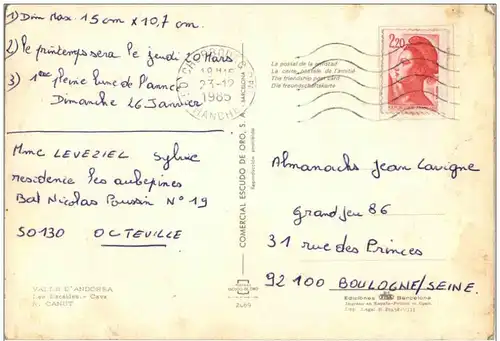 1) Dim Max. 15 cm x 10,7 cm.
2) le printemps sera le jeudi 20 Mars
3) 1ère pleine lune de l'année
Dimanche 26 Janvier
Mme LEVEZIEL Sylvie
residence les aubepines
Bat Nicolas Poussin N° 19
50130 OCTEVILLE
VALLS D'ANDORRA
CHERBOURG
23-12
1985
MANCHE
COMERCIAL ESCUDO DE ORO, S. A. BARCELONA
Reproducción prohibida
La postal de la amistad
La carte postale de l'amitié
The friendship post card
Die Freundschaftskarte
2,20
Almanachs Jean Lavigne
Grand jeu 86
31 rue des Princes
92100 BOULOGNE/SEINE.
Barcelona